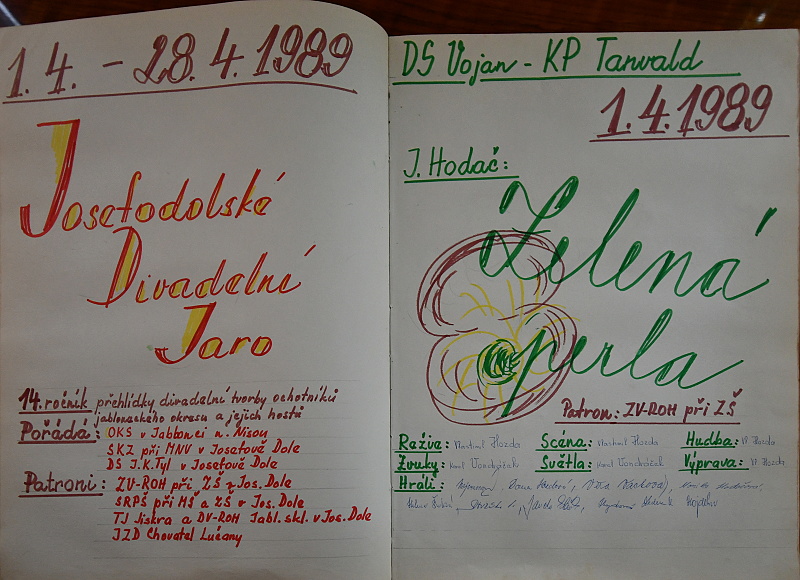 1. 4. - 28. 4. 1989
Josefodolské
Divadelní
Jaro
14. ročník přehlídky divadelní tvorby ochotníků
jabloneckého okresu a jejich hostů
Pořádá: OKS v Jablonci n. Nisou
SKZ při MNV v Josefově Dole
DS J.K.Tyl v Josefově Dole
Patroni: ZV-ROH při ZŠ v Jos. Dole
SRPŠ při MŠ a ZŠ v Jos. Dole
TJ Jiskra a DV-ROH Jabl. skl. v Jos. Dole
JZD Chovatel Lučany
DS Vojan - KP Tanvald
1. 4. 1989
J. Hodač:
Zelená
perla
Patron: ZV-ROH při ZŠ
Režie: Scéna: Hudba:
Zvuky: Karel Vondráček Světla: Karel Vondráček Výprava:
Hráli: